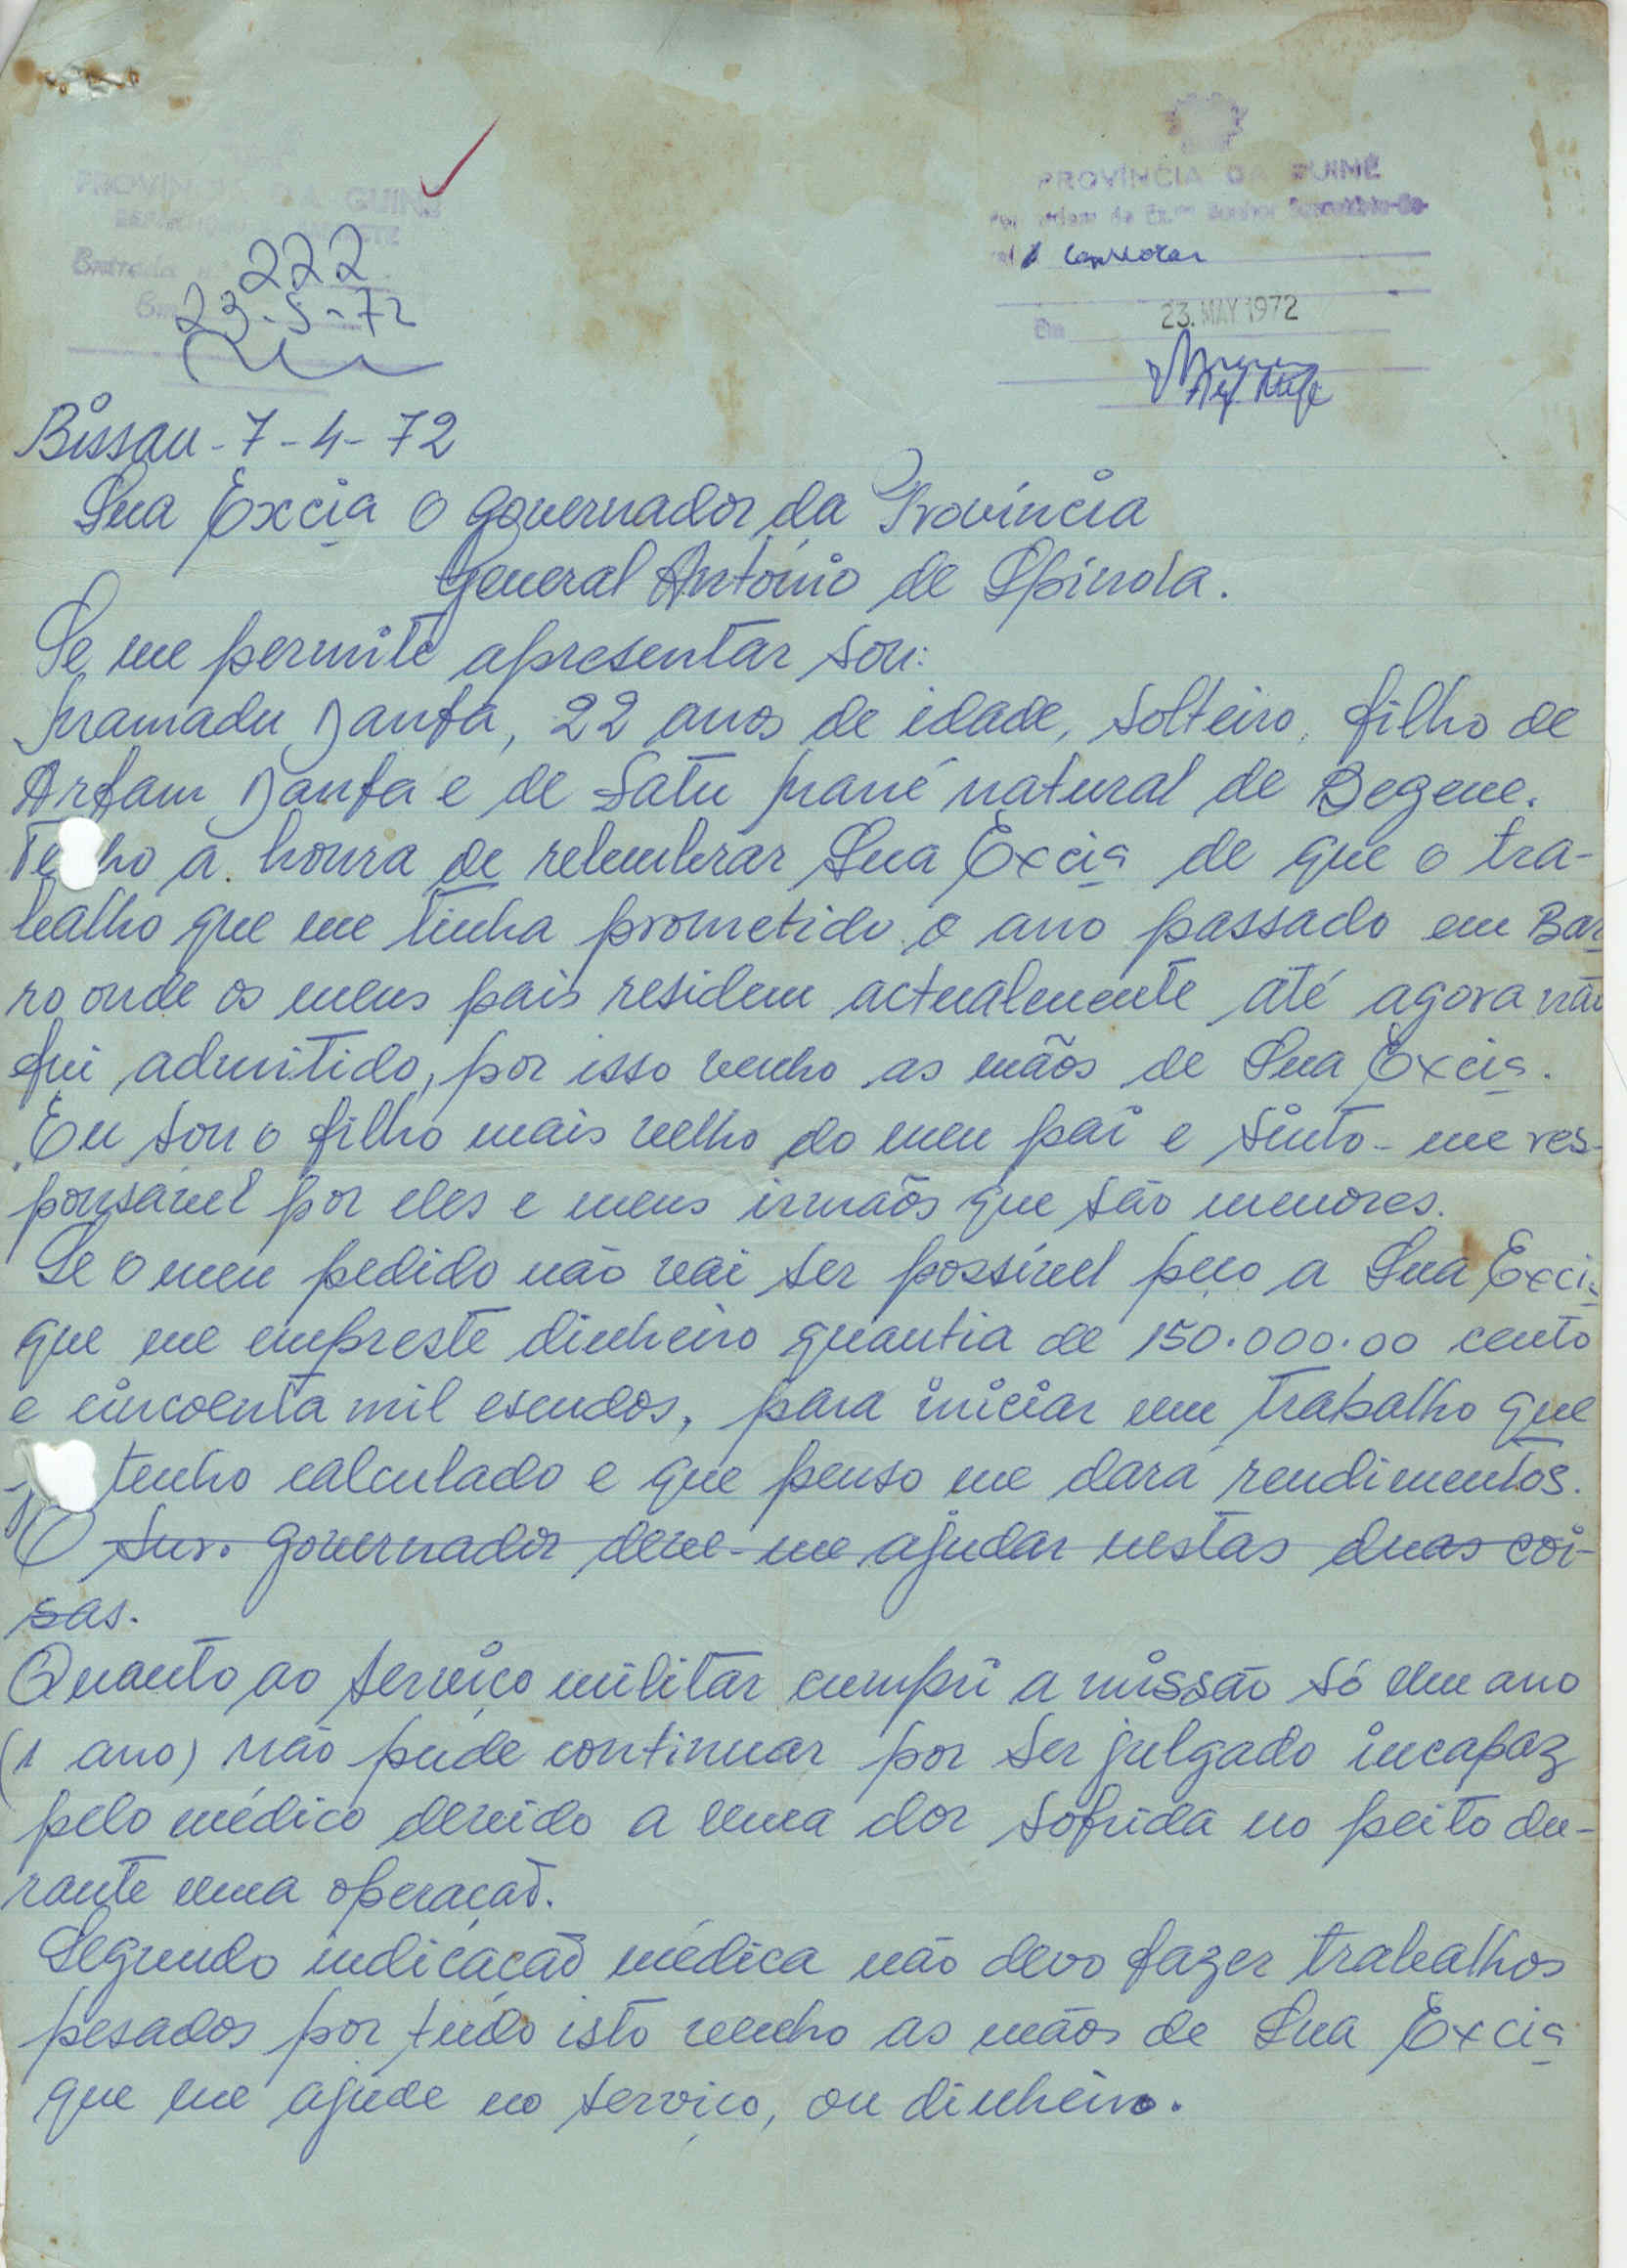 PROVÍNCIA DA GUINÉ
Entrada n.º 222
23-5-72
PROVÍNCIA DA GUINÉ
Por ordem de Ex.mo Senhor
23. MAY 1972
Em
Bissau - 7 - 4 - 72
Sua Excia o governador da Província
General António de Spínola.
Se me permite apresentar sou:
Mamadu Danfa, 22 anos de idade, solteiro, filho de
Arfam Danfa e de Satu Mané natural de Begene.
Tenho a honra de relembrar Sua Excia de que o tra-
balho que me tinha prometido o ano passado em Bar
ro onde os meus pais residem actualmente até agora não
fui admitido, por isso venho as mãos de Sua Excia.
Eu sou o filho mais velho do meu pai e sinto-me res-
ponsavel por eles e meus irmãos que são menores.
Se o meu pedido não vai ser possível peço a Sua Excia
que me empreste dinheiro quantia de 150.000.00 cento
e cincoenta mil escudos, para iniciar um trabalho que
já tenho calculado e que penso me dará rendimentos.
O Snr. governador deve-me ajudar nestas duas coi-
sas.
Quanto ao serviço militar cumpri a missão só um ano
(1 ano) não pude continuar por ser julgado incapaz
pelo médico devido a uma dor sofrida no peito du-
rante uma operação.
Segundo indicação médica não devo fazer trabalhos
pesados por tudo isto venho as mãos de Sua Excia
que me ajude no serviço, ou dinheiro.